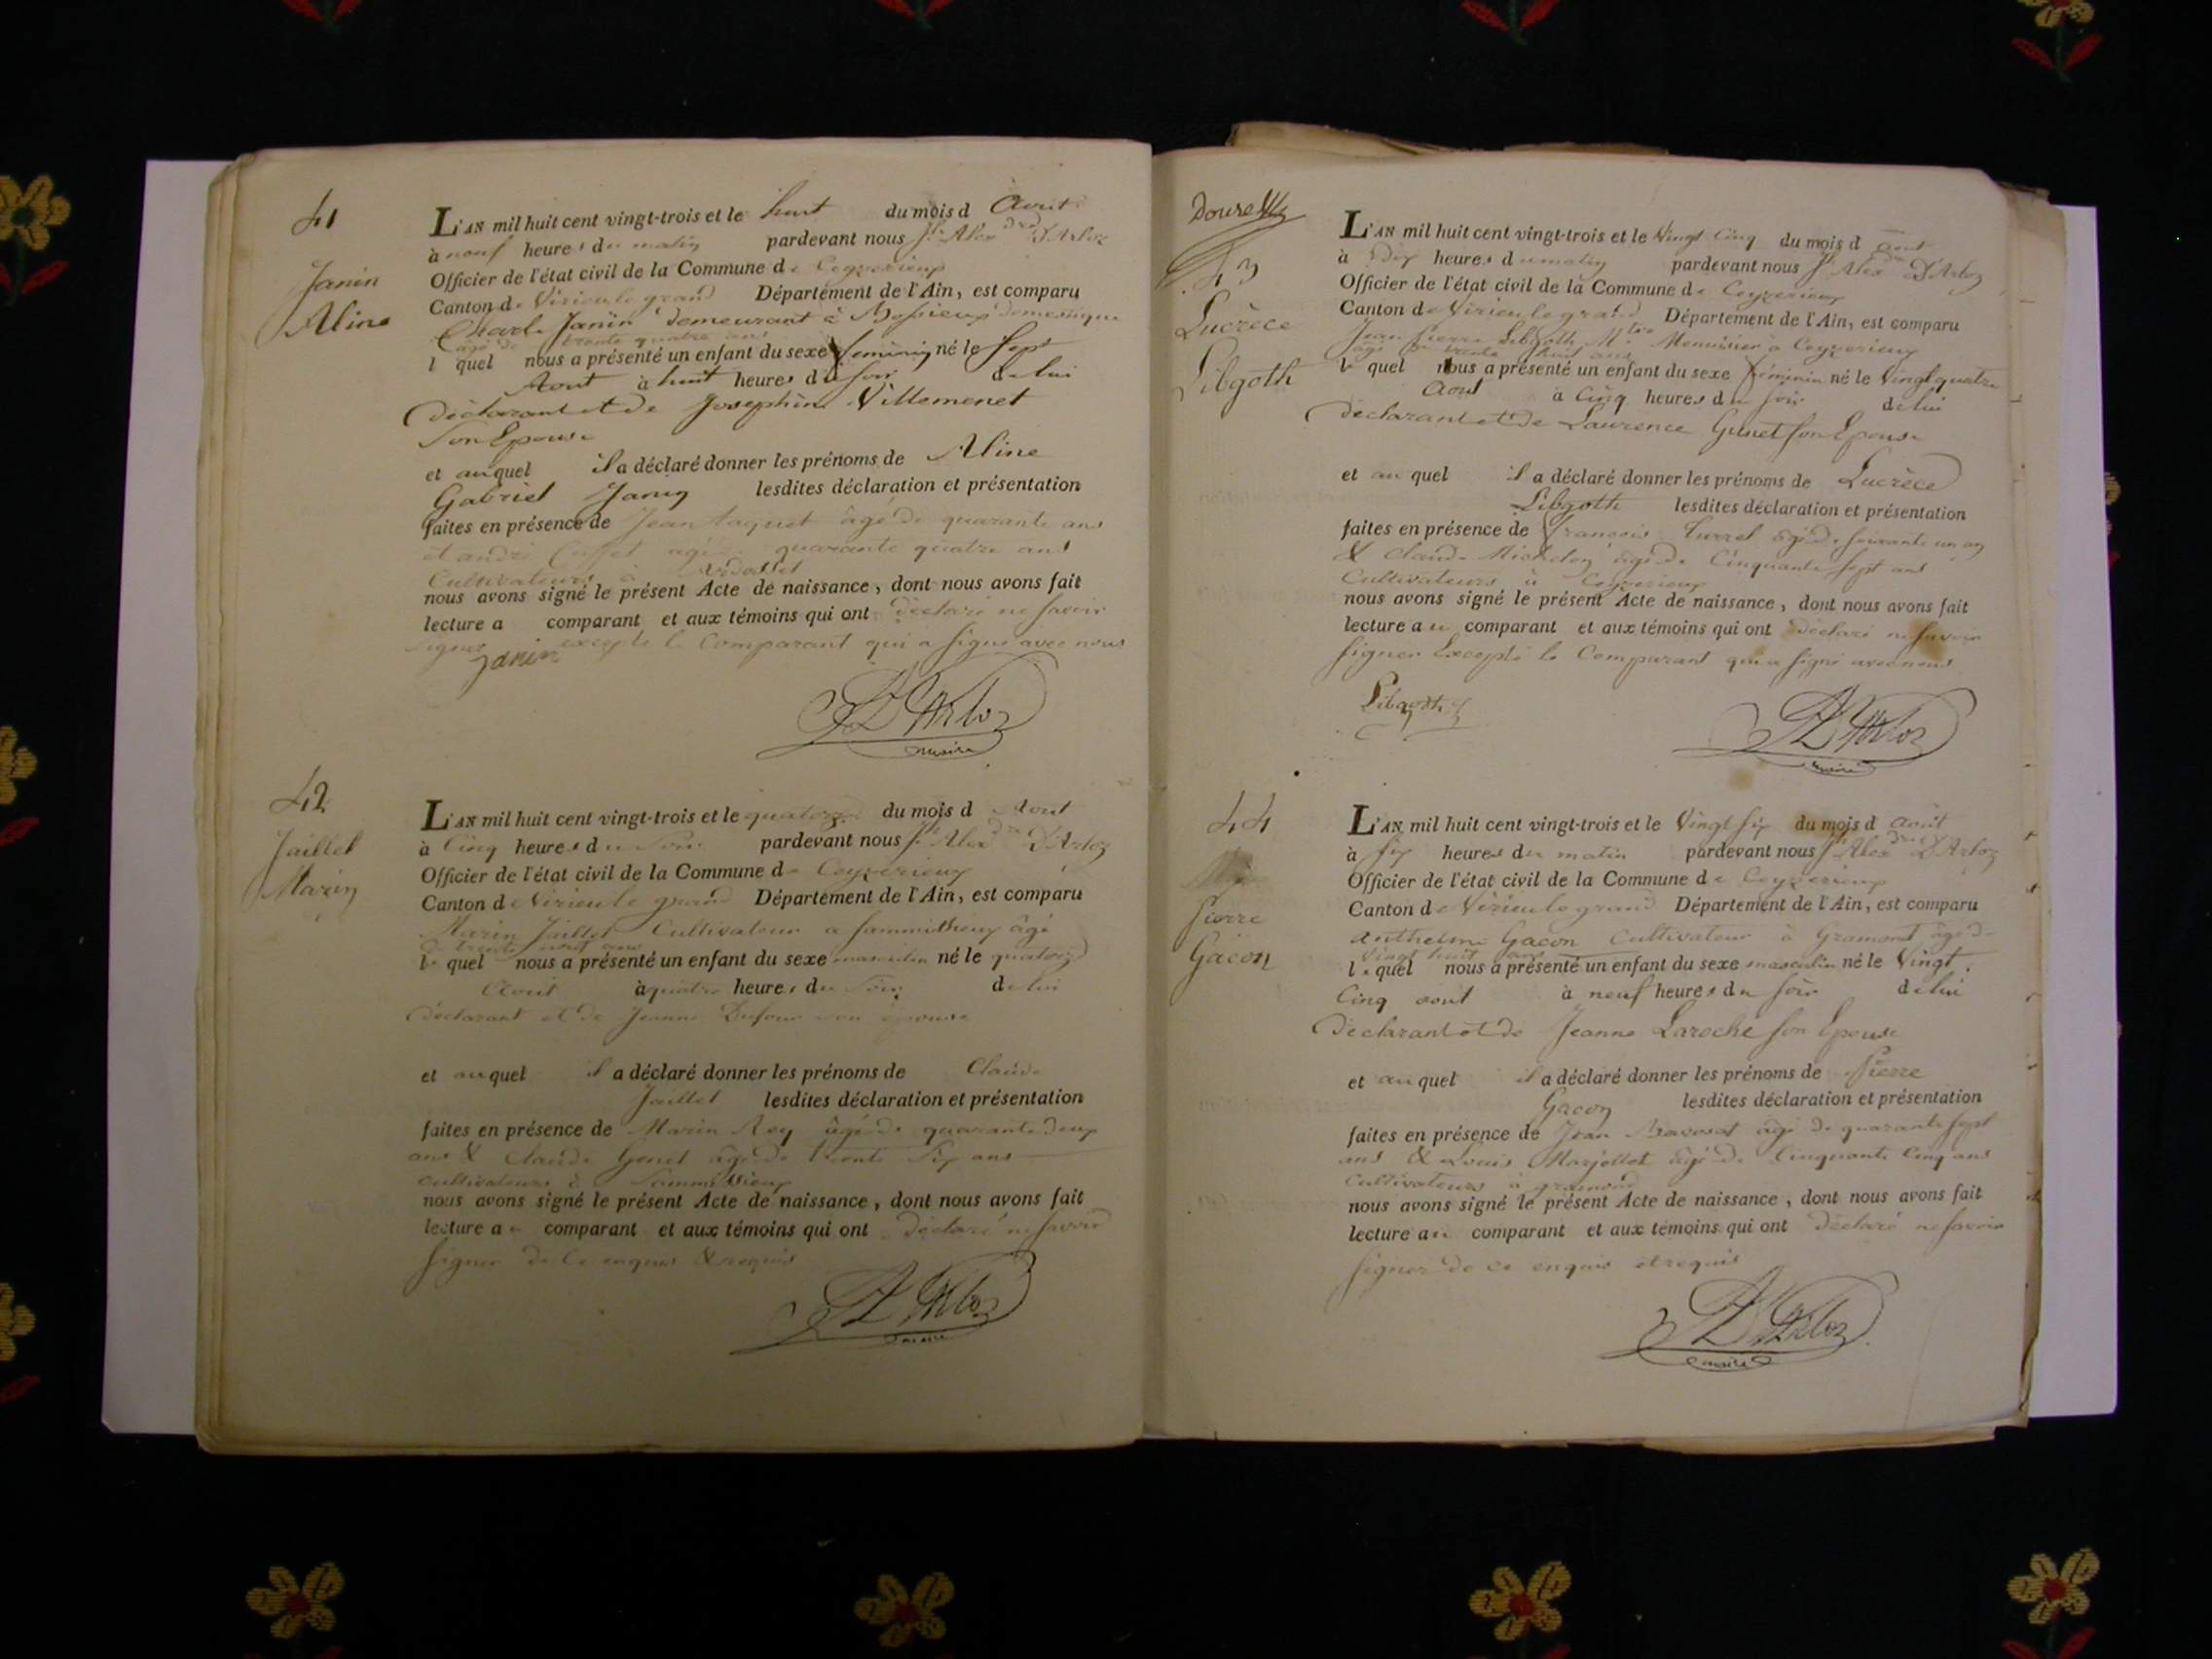 41
Janin
Aline
L'AN mil huit cent vingt-trois et le huit du mois d Août
à neuf heures du matin pardevant nous Jh Alexdre D'Arloz
Officier de l'état civil de la Commune de Ceyzerieux
Canton de Virieu le grand Département de l'Ain, est comparu
Charle Janin demeurant à domestique
âgé de trente quatre ans
l quel nous a présenté un enfant du sexe feminin né le sept
Aout à huit heures du soir de lui
déclarant et de Josephine Villemenet
son Epouse
et au quel il a déclaré donner les prénoms de Aline
Gabriel Janin lesdites déclaration et présentation
faites en présence de Jean taquet âgé de quarante ans
et andré Cuffet agé quarante quatre ans
Cultivateurs à
nous avons signé le présent Acte de naissance, dont nous avons fait
lecture a comparant et aux témoins qui ont déclaré ne savoir
signer excepté le Comparant qui a signé avec nous
Janin
D'Arloz
maire
42
Jaillet
Marin
L'AN mil huit cent vingt-trois et le quatorze du mois d Aout
à Cinq heures du Soir pardevant nous Jh Alexdre D'Arloz
Officier de l'état civil de la Commune de Ceyzerieux
Canton de Virieu le grand Département de l'Ain, est comparu
Marin Jaillet Cultivateur a âgé
de trente neuf ans
le quel nous a présenté un enfant du sexe masculin né le quatorze
Aout à quatre heures du Soir de lui
déclarant et de Jeanne Dufour son épouse
et au quel il a déclaré donner les prénoms de Claude
Jaillet lesdites déclaration et présentation
faites en présence de Marin Rey âgé de quarante deux
ans & Claude Genet âgé de trente six ans
cultivateurs à
nous avons signé le présent Acte de naissance, dont nous avons fait
lecture au comparant et aux témoins qui ont déclaré ne savoir
signer de ce enquis & requis
D'Arloz
maire
43
Lucrèce
Libgoth
L'AN mil huit cent vingt-trois et le Vingt Cinq du mois d aout
à Dix heures du matin pardevant nous Jh Alexdre D'Arloz
Officier de l'état civil de la Commune de Ceyzerieux
Canton de Virieu le grand Département de l'Ain, est comparu
Jean Pierre Libgoth Mtre Menuisier à Ceyzerieux
âgé de trente huit ans
le quel nous a présenté un enfant du sexe féminin né le Vingt quatre
Aout à Cinq heures du soir de lui
déclarant et de Laurence Gunet son Epouse
et au quel il a déclaré donner les prénoms de Lucrèce
Libgoth lesdites déclaration et présentation
faites en présence de françois turrel âgé de soixante un an
& Claude Michelon âgé de Cinquante sept ans
Cultivateurs à Ceyzerieux
nous avons signé le présent Acte de naissance, dont nous avons fait
lecture au comparant et aux témoins qui ont déclaré ne savoir
signer Excepté le Comparant qui a signé avec nous
Libgoth
D'Arloz
maire
44
Pierre
Gacon
L'AN mil huit cent vingt-trois et le Vingt six du mois d août
à six heures du matin pardevant nous Jh Alexdre D'Arloz
Officier de l'état civil de la Commune de Ceyzerieux
Canton de Virieu le grand Département de l'Ain, est comparu
anthelme Gacon Cultivateur à Gramont âgé de
Vingt huit ans
le quel nous a présenté un enfant du sexe masculin né le Vingt
Cinq aout à neuf heures du soir de lui
Déclarant et de Jeanne Laroche son Epouse
et au quel il a déclaré donner les prénoms de Pierre
Gacon lesdites déclaration et présentation
faites en présence de Jean Bavosat âgé de quarante sept
ans & Louis Marjollet âgé de Cinquante Cinq ans
Cultivateurs à gramond
nous avons signé le présent Acte de naissance, dont nous avons fait
lecture au comparant et aux témoins qui ont déclaré ne savoir
signer de ce enquis et requis
D'Arloz
maire